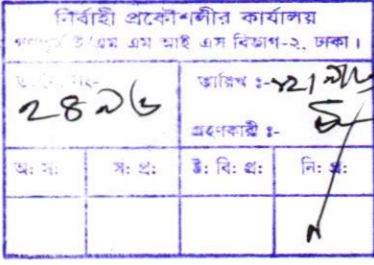 নির্বাহী প্রকৌশলীর কার্যালয়
গণপূর্ত ই/এম এম আই এস বিভাগ-২, ঢাকা।
নং- তারিখ :-
২৪৯৬
গ্রহণকারী :-
অ: স: স: প্র: উ: বি: প্র: নি: প্র: